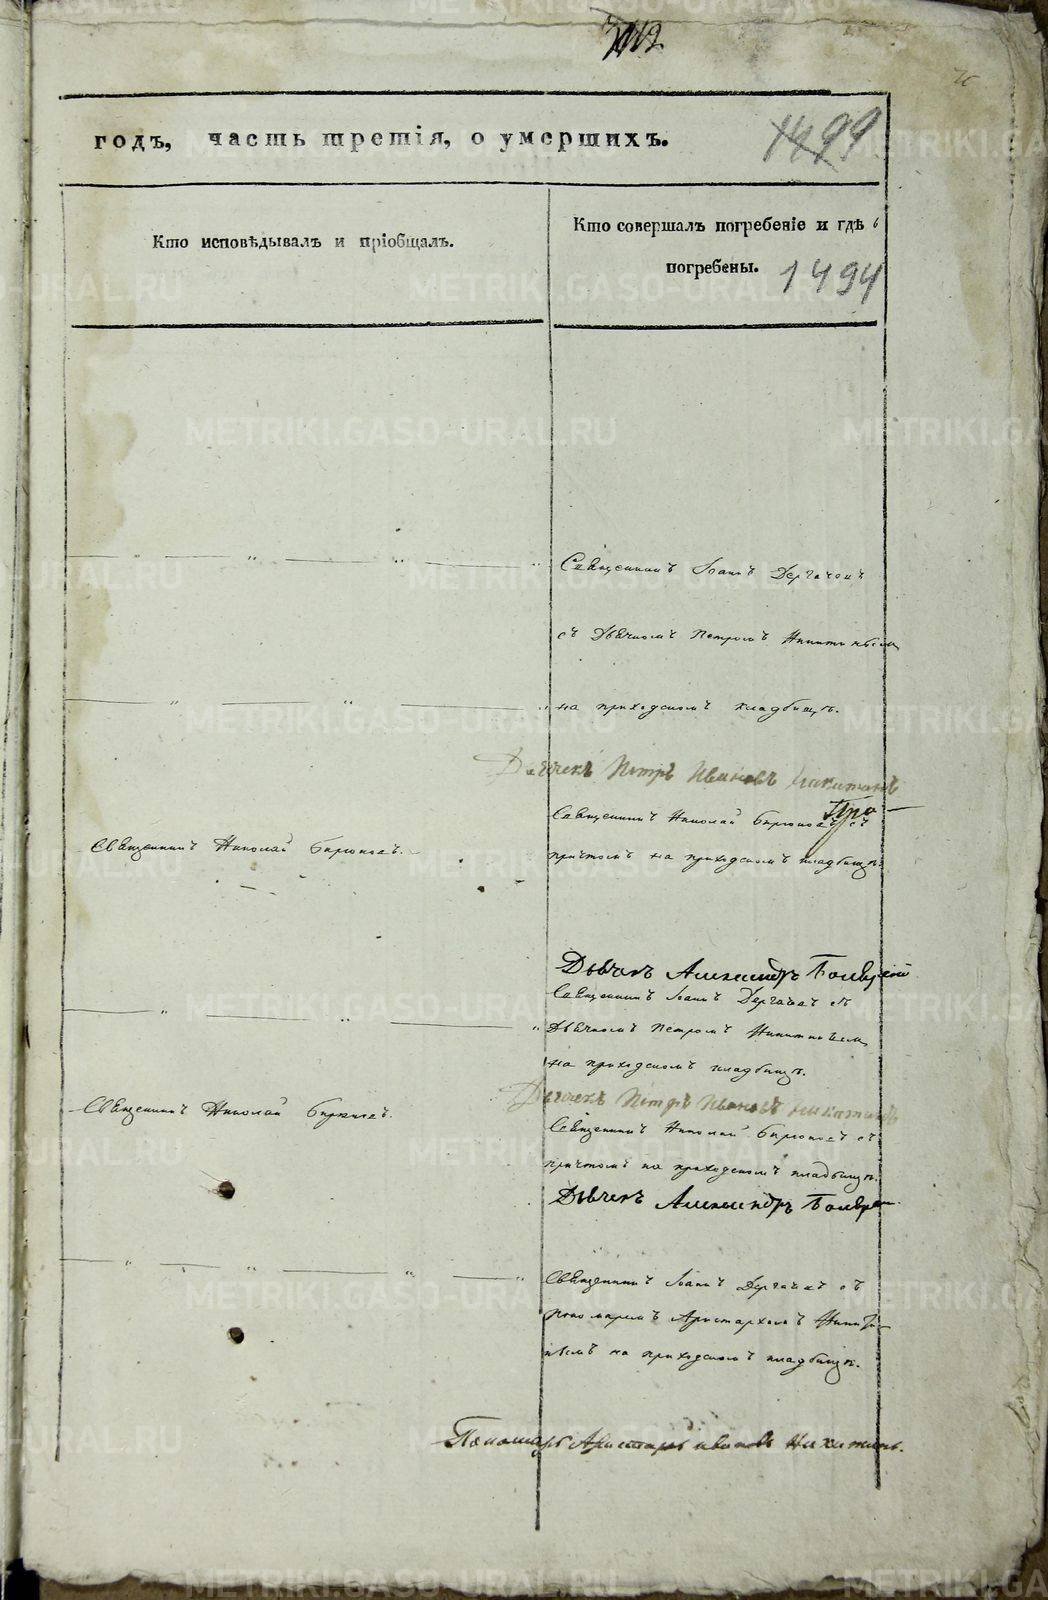 годъ, часть третія, о умершихъ.
1499
Кто исповѣдывалъ и пріобщалъ.
Кто совершалъ погребеніе и гдѣ
погребены.
1494
Священникъ Іоаннъ Дергачевъ
съ Дьячкомъ Петромъ Никитинымъ
на приходскомъ кладбищѣ.
Дьячекъ Петръ Ивановъ Никитинъ
Священникъ Николай Бирюковъ съ
Священникъ Николай Бирюковъ.
причтомъ на приходскомъ кладбищѣ.
Дьячекъ Александръ
Священникъ Іоаннъ Дергачевъ съ
Дьячкомъ Петромъ Никитинымъ
на приходскомъ кладбищѣ.
Дьячекъ Петръ Ивановъ Никитинъ
Священникъ Николай Бирюковъ.
Священникъ Николай Бирюковъ съ
причтомъ на приходскомъ кладбищѣ.
Дьячекъ Александръ
Священникъ Іоаннъ Дергачевъ съ
пономаремъ Аристархомъ Никити-
нымъ на приходскомъ кладбищѣ.
Пономарь Аристархъ Ивановъ Никитинъ.
METRIKI.GASO-URAL.RU